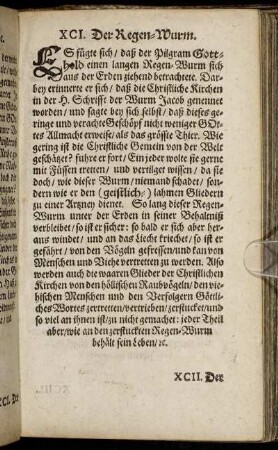 XCI. Der Regen-Wurm.
ES fügte sich/ daß der Pilgram Gott-
hold einen langen Regen-Wurm sich
aus der Erden ziehend betrachtete. Dar-
bey erinnerte er sich/ daß die Christliche Kirchen
in der H. Schrifft der Wurm Jacob genennet
worden/ und sagte bey sich selbst/ daß dieses ge-
ringe und verachte Geschöpf nicht weniger GOt-
tes Allmacht erweise/ als das grösste Thier. Wie
gering ist die Christliche Gemein von der Welt
geschätzet? fuhre er fort/ Ein jeder wolte sie gerne
mit Füssen tretten/ und vertilget wissen/ da sie
doch/ wie dieser Wurm/ niemand schadet/ son-
dern wie er den (geistlich-) lahmen Gliedern
zu einer Artzney dienet. So lang dieser Regen-
Wurm unter der Erden in seiner Behaltniß
verbleibet/ so ist er sicher: so bald er sich aber her-
aus windet/ und an das Liecht kriechet/ so ist er
gefährt/ von den Vögeln gefressen/ und kan von
Menschen und Viehe vertretten zu werden. Also
werden auch die waaren Glieder der Christlichen
Kirchen von den höllischen Raubvögeln/ den vie-
bischen Menschen und den Verfolgern Göttli-
ches Wortes zertretten/ vertrieben/ zerstucket/ und
so viel an ihnen ist/ zu nicht gemachet: jeder Theil
aber/ wie an den zerstuckten Regen-Wurm
behält sein Leben/ ꝛc.
XCII. Der